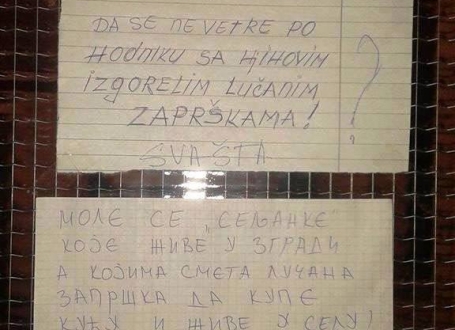 DA SE NE VETRE PO
HODNIKU SA NJIHOVIM
IZGORELIM LUČANIM
ZAPRŠKAMA!
?
SVAŠTA
МОЛЕ СЕ „СЕЉАНКЕ
КОЈЕ ЖИВЕ У ЗГРАДИ
А КОЈИМА СМЕТА ЛУЧАНА
ЗАПРШКА ДА КУПЕ
КУЋУ И ЖИВЕ У СЕЛУ!